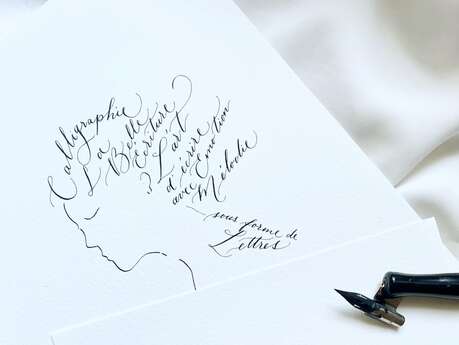 Calligraphie
La
Belle
Écriture ?
? L'art
d'écrire
avec Émotion
Mélodie
sous forme de
Lettres